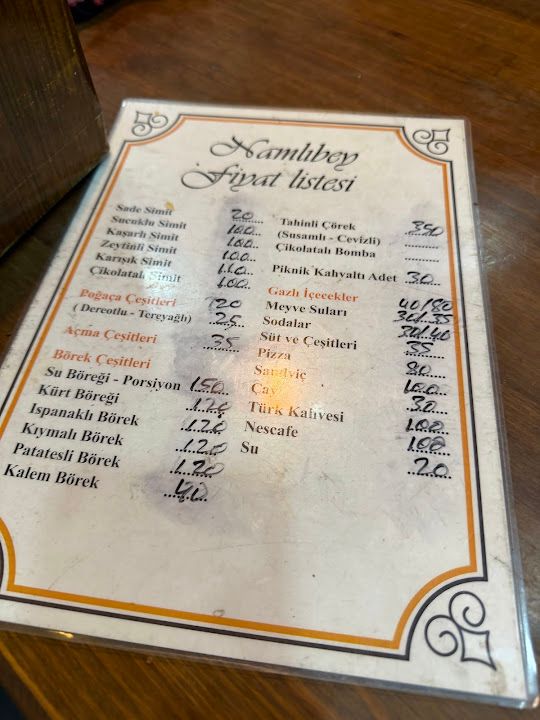 Namlıbey
Fiyat listesi
Sade Simit 20
Sucuklu Simit 100
Kaşarlı Simit 100
Zeytinli Simit 100
Karışık Simit 110
Çikolatalı Simit 100
Poğaça Çeşitleri 20
( Dereotlu - Tereyağlı) 25
Açma Çeşitleri 35
Börek Çeşitleri
Su Böreği - Porsiyon 150
Kürt Böreği 120
Ispanaklı Börek 120
Kıymalı Börek 120
Patatesli Börek 120
Kalem Börek 40
Tahinli Çörek 350
(Susamlı - Cevizli)
Çikolatalı Bomba
Piknik Kahvaltı Adet 30
Gazlı İçecekler 40/80
Meyve Suları 30/.35
Sodalar 30/.40
Süt ve Çeşitleri 35
Pizza 80
Sandviç 100
Çay 30
Türk Kahvesi 100
Nescafe 100
Su 20